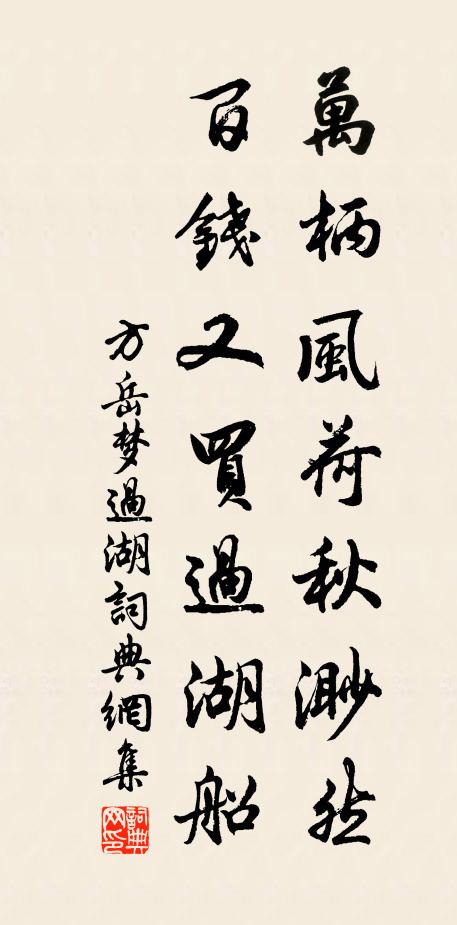 萬柄風荷秋渺然
百錢又買過湖船
方岳梦過湖詞典網集
詞典网印